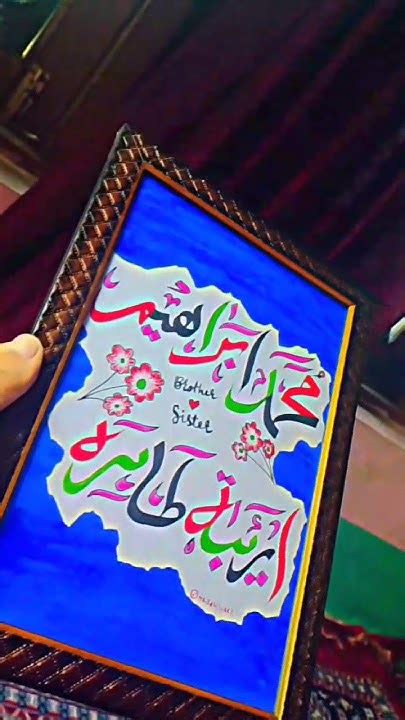 محمد ابراھیم
Brother
Sister
اریبہ طاہرہ